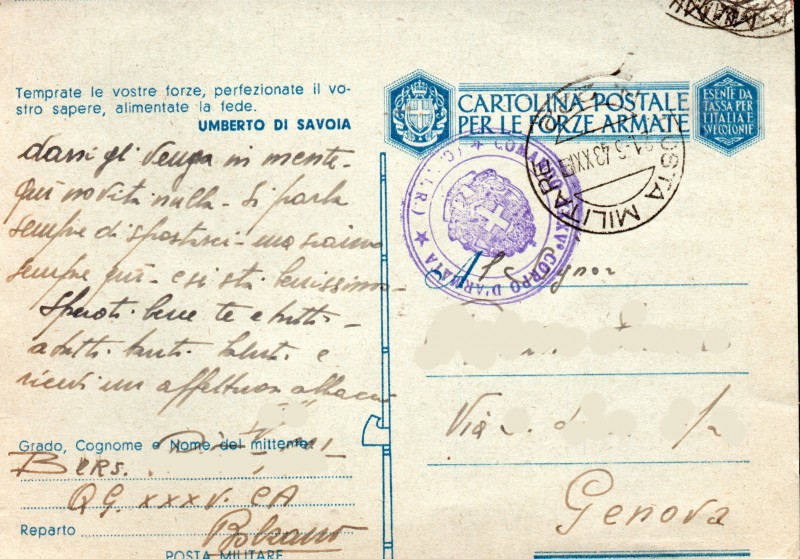 Temprate le vostre forze, perfezionate il vo-
stro sapere, alimentate la fede.
UMBERTO DI SAVOIA
CARTOLINA POSTALE
PER LE FORZE ARMATE
ESENTE DA
TASSA PER
L'ITALIA E
SUE COLONIE
POSTA MILITARE
21.5.43 XXI
COMANDO XXXV° CORPO D'ARMATA
venga in mente -
Qui novità nulla - Si parla
sempre di spostarsi - ma siamo
sempre qui - e si sta benissimo -
Sperati bene te e tutti -
a tutti tanti saluti e
ricevi un affettuoso abbraccio
Al Signor
Via
Genova
Grado, Cognome e Nome del mittente:
Bers.
QG. XXXV. CA
Reparto Bolzano
POSTA MILITARE